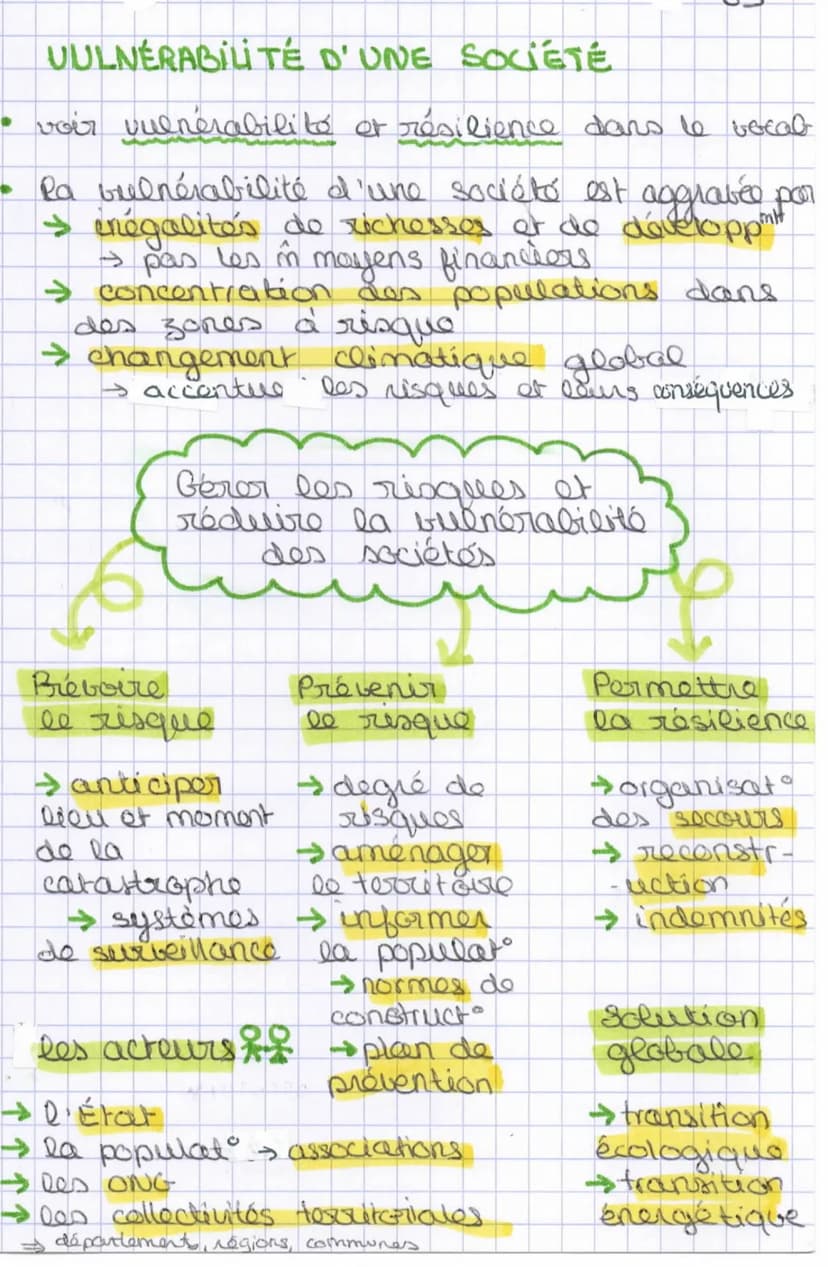 VULNÉRABILITÉ D'UNE SOCIÉTÉ
• voir vulnérabilité et résilience dans le vocab
• la vulnérabilité d'une société est aggravée par
→ inégalités de richesses et de développmnt
→ pas les m̂ moyens financiers
→ concentration des populations dans
des zones à risque
→ changement climatique global
→ accentue les risques et leurs conséquences
Gérer les risques et
réduire la vulnérabilité
des sociétés
Prévoire
le risque
→ anticiper
lieu et moment
de la
catastrophe
→ systèmes
de surveillance
Prévenir
le risque
→ degré de
risques
→ aménager
le territoire
→ informer
la populat°
→ normes de
construct°
→ plan de
prévention
Permettre
la résilience
→ organisat°
des secours
→ reconstr-
-uction
→ indemnités
les acteurs
→ l'État
→ la populat° → associations
→ les ONG
→ les collectivités territoriales
⇒ département, régions, communes
Solution
globale
→ transition
écologique
→ transition
énergétique